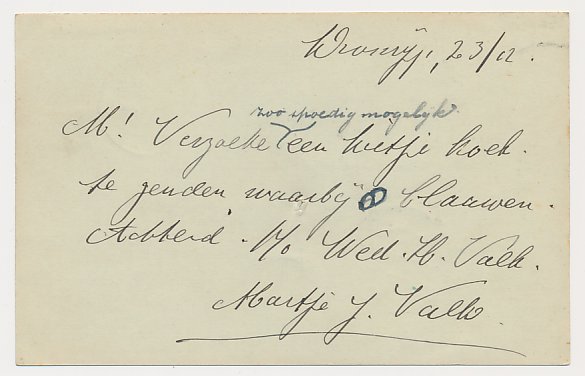 Wronijp, 23/12.
zoo spoedig mogelijk
M! Verzoeke een kistje koek.
te zenden waarbij 8 blaauwen.
Achtend. p/o Wed. H. Valk.
Martje J. Valk.